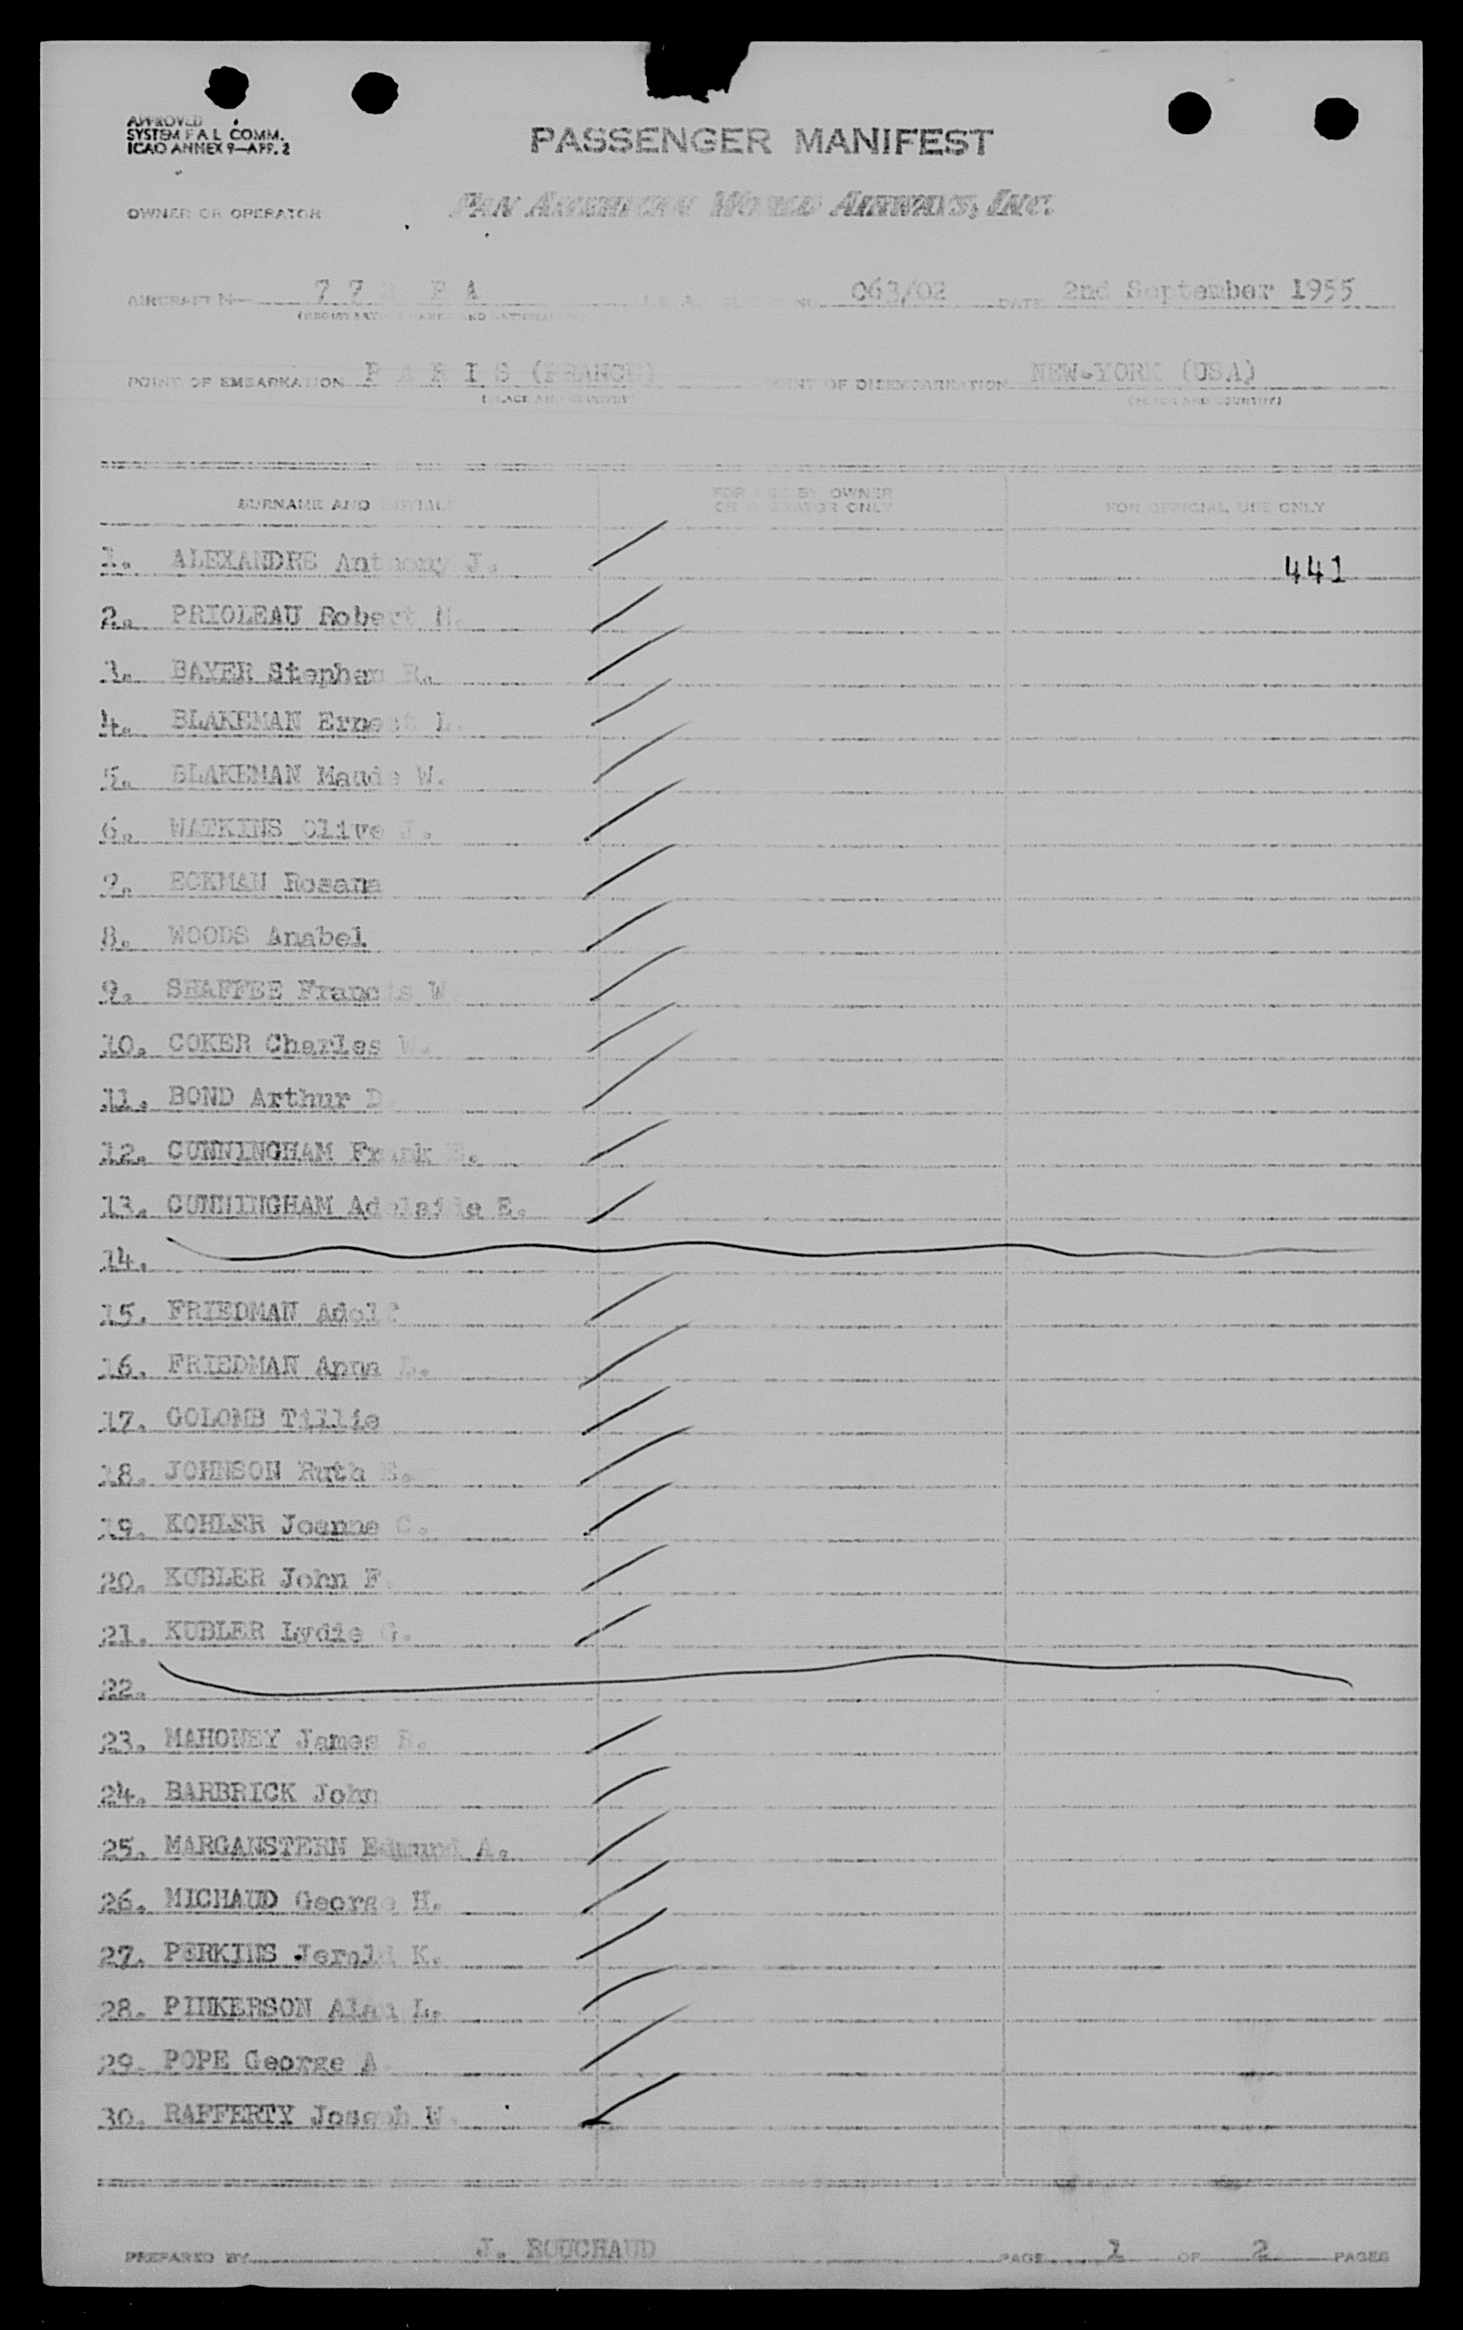 APPROVED
SYSTEM F A L COMM.
ICAO ANNEX 9—APP. 2
PASSENGER MANIFEST
OWNER OR OPERATOR PAN AMERICAN WORLD AIRWAYS, INC.
AIRCRAFT No 063/02 DATE 2nd September 1955
POINT OF EMBARKATION P A R I S (FRANCE) POINT OF DISEMBARKATION NEW-YORK (USA)
(PLACE AND COUNTRY) (PLACE AND COUNTRY)
SURNAME AND INITIALS FOR USE BY OWNER OR OPERATOR ONLY FOR OFFICIAL USE ONLY
1. ALEXANDRE Anthony J. 441
2. PRIOLEAU Robert H.
3. BAYER Stephen R.
4. BLAKEMAN Ernest L.
5. BLAKEMAN Maude W.
6. WATKINS Olive J.
7. ECKMAN Rosana
8. WOODS Anabel
9. SHAFFEE Francis W
10. COKER Charles W.
11. BOND Arthur D
12. CUNNINGHAM Frank
13. CUNNINGHAM Adelaide E.
14.
15. FRIEDMAN Adolf
16. FRIEDMAN Anna
17. GOLOMB Tillie
18. JOHNSON Ruth E.
19. KOHLER Joanne C.
20. KUBLER John F.
21. KUBLER Lydie G.
22.
23. MAHONEY James R.
24. BARBRICK John
25. MARGANSTERN Edmund A.
26. MICHAUD George H.
27. PERKINS Jerold K.
28. PINKERSON Alan L.
29. POPE George A
30. RAFFERTY Joseph W.
PREPARED BY J. BOUCHAUD PAGE 1 OF 2 PAGES